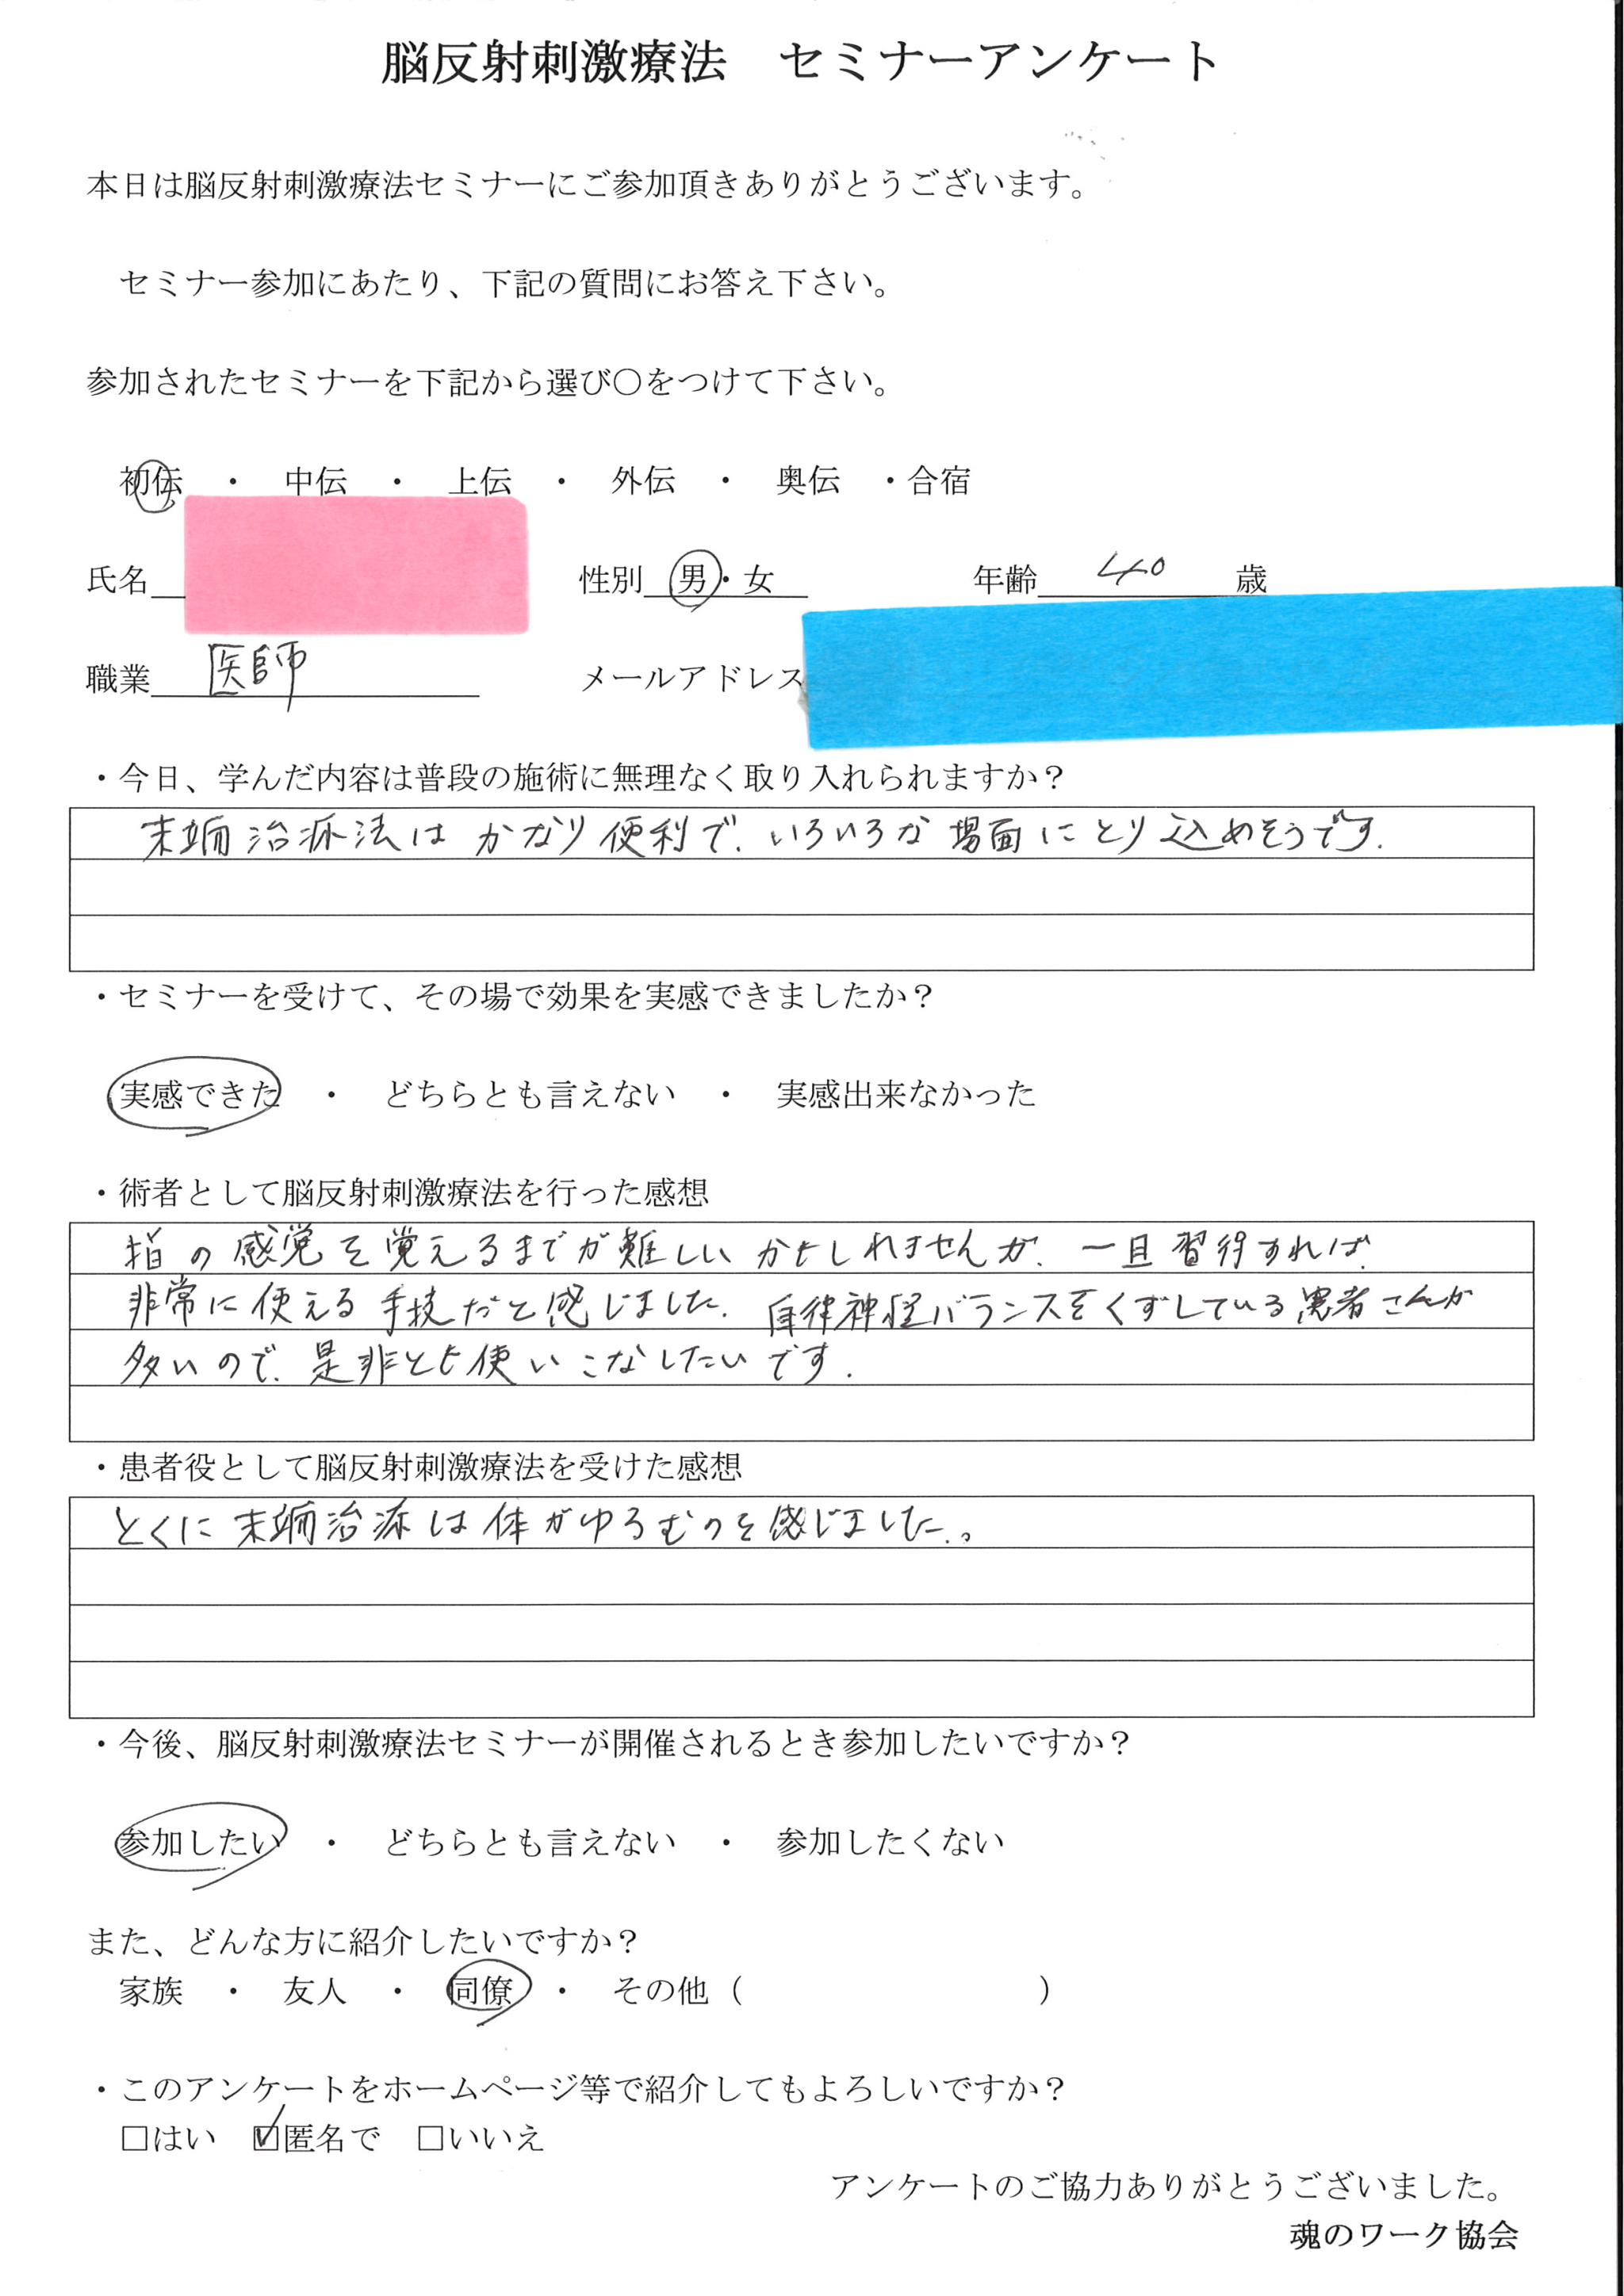 脳反射刺激療法　セミナーアンケート
本日は脳反射刺激療法セミナーにご参加頂きありがとうございます。
セミナー参加にあたり、下記の質問にお答え下さい。
参加されたセミナーを下記から選び〇をつけて下さい。
初伝　・　中伝　・　上伝　・　外伝　・　奥伝　・合宿
氏名　性別　男・女　年齢　40　歳
職業　医師　メールアドレス
・今日、学んだ内容は普段の施術に無理なく取り入れられますか？
末端治療法はかなり便利で、いろいろな場面にとり込めそうです.
・セミナーを受けて、その場で効果を実感できましたか？
実感できた　・　どちらとも言えない　・　実感出来なかった
・術者として脳反射刺激療法を行った感想
指の感覚を覚えるまでが難しいかもしれませんが、一旦習得すれば、
非常に使える手技だと感じました. 自律神経バランスをくずしている患者さんが
多いので、是非とも使いこなしたいです.
・患者役として脳反射刺激療法を受けた感想
とくに末端治療は体がゆるむのを感じました。
・今後、脳反射刺激療法セミナーが開催されるとき参加したいですか？
参加したい　・　どちらとも言えない　・　参加したくない
また、どんな方に紹介したいですか？
家族　・　友人　・　同僚　・　その他（　　　　　　　　　）
・このアンケートをホームページ等で紹介してもよろしいですか？
□はい　☑匿名で　□いいえ
アンケートのご協力ありがとうございました。
魂のワーク協会